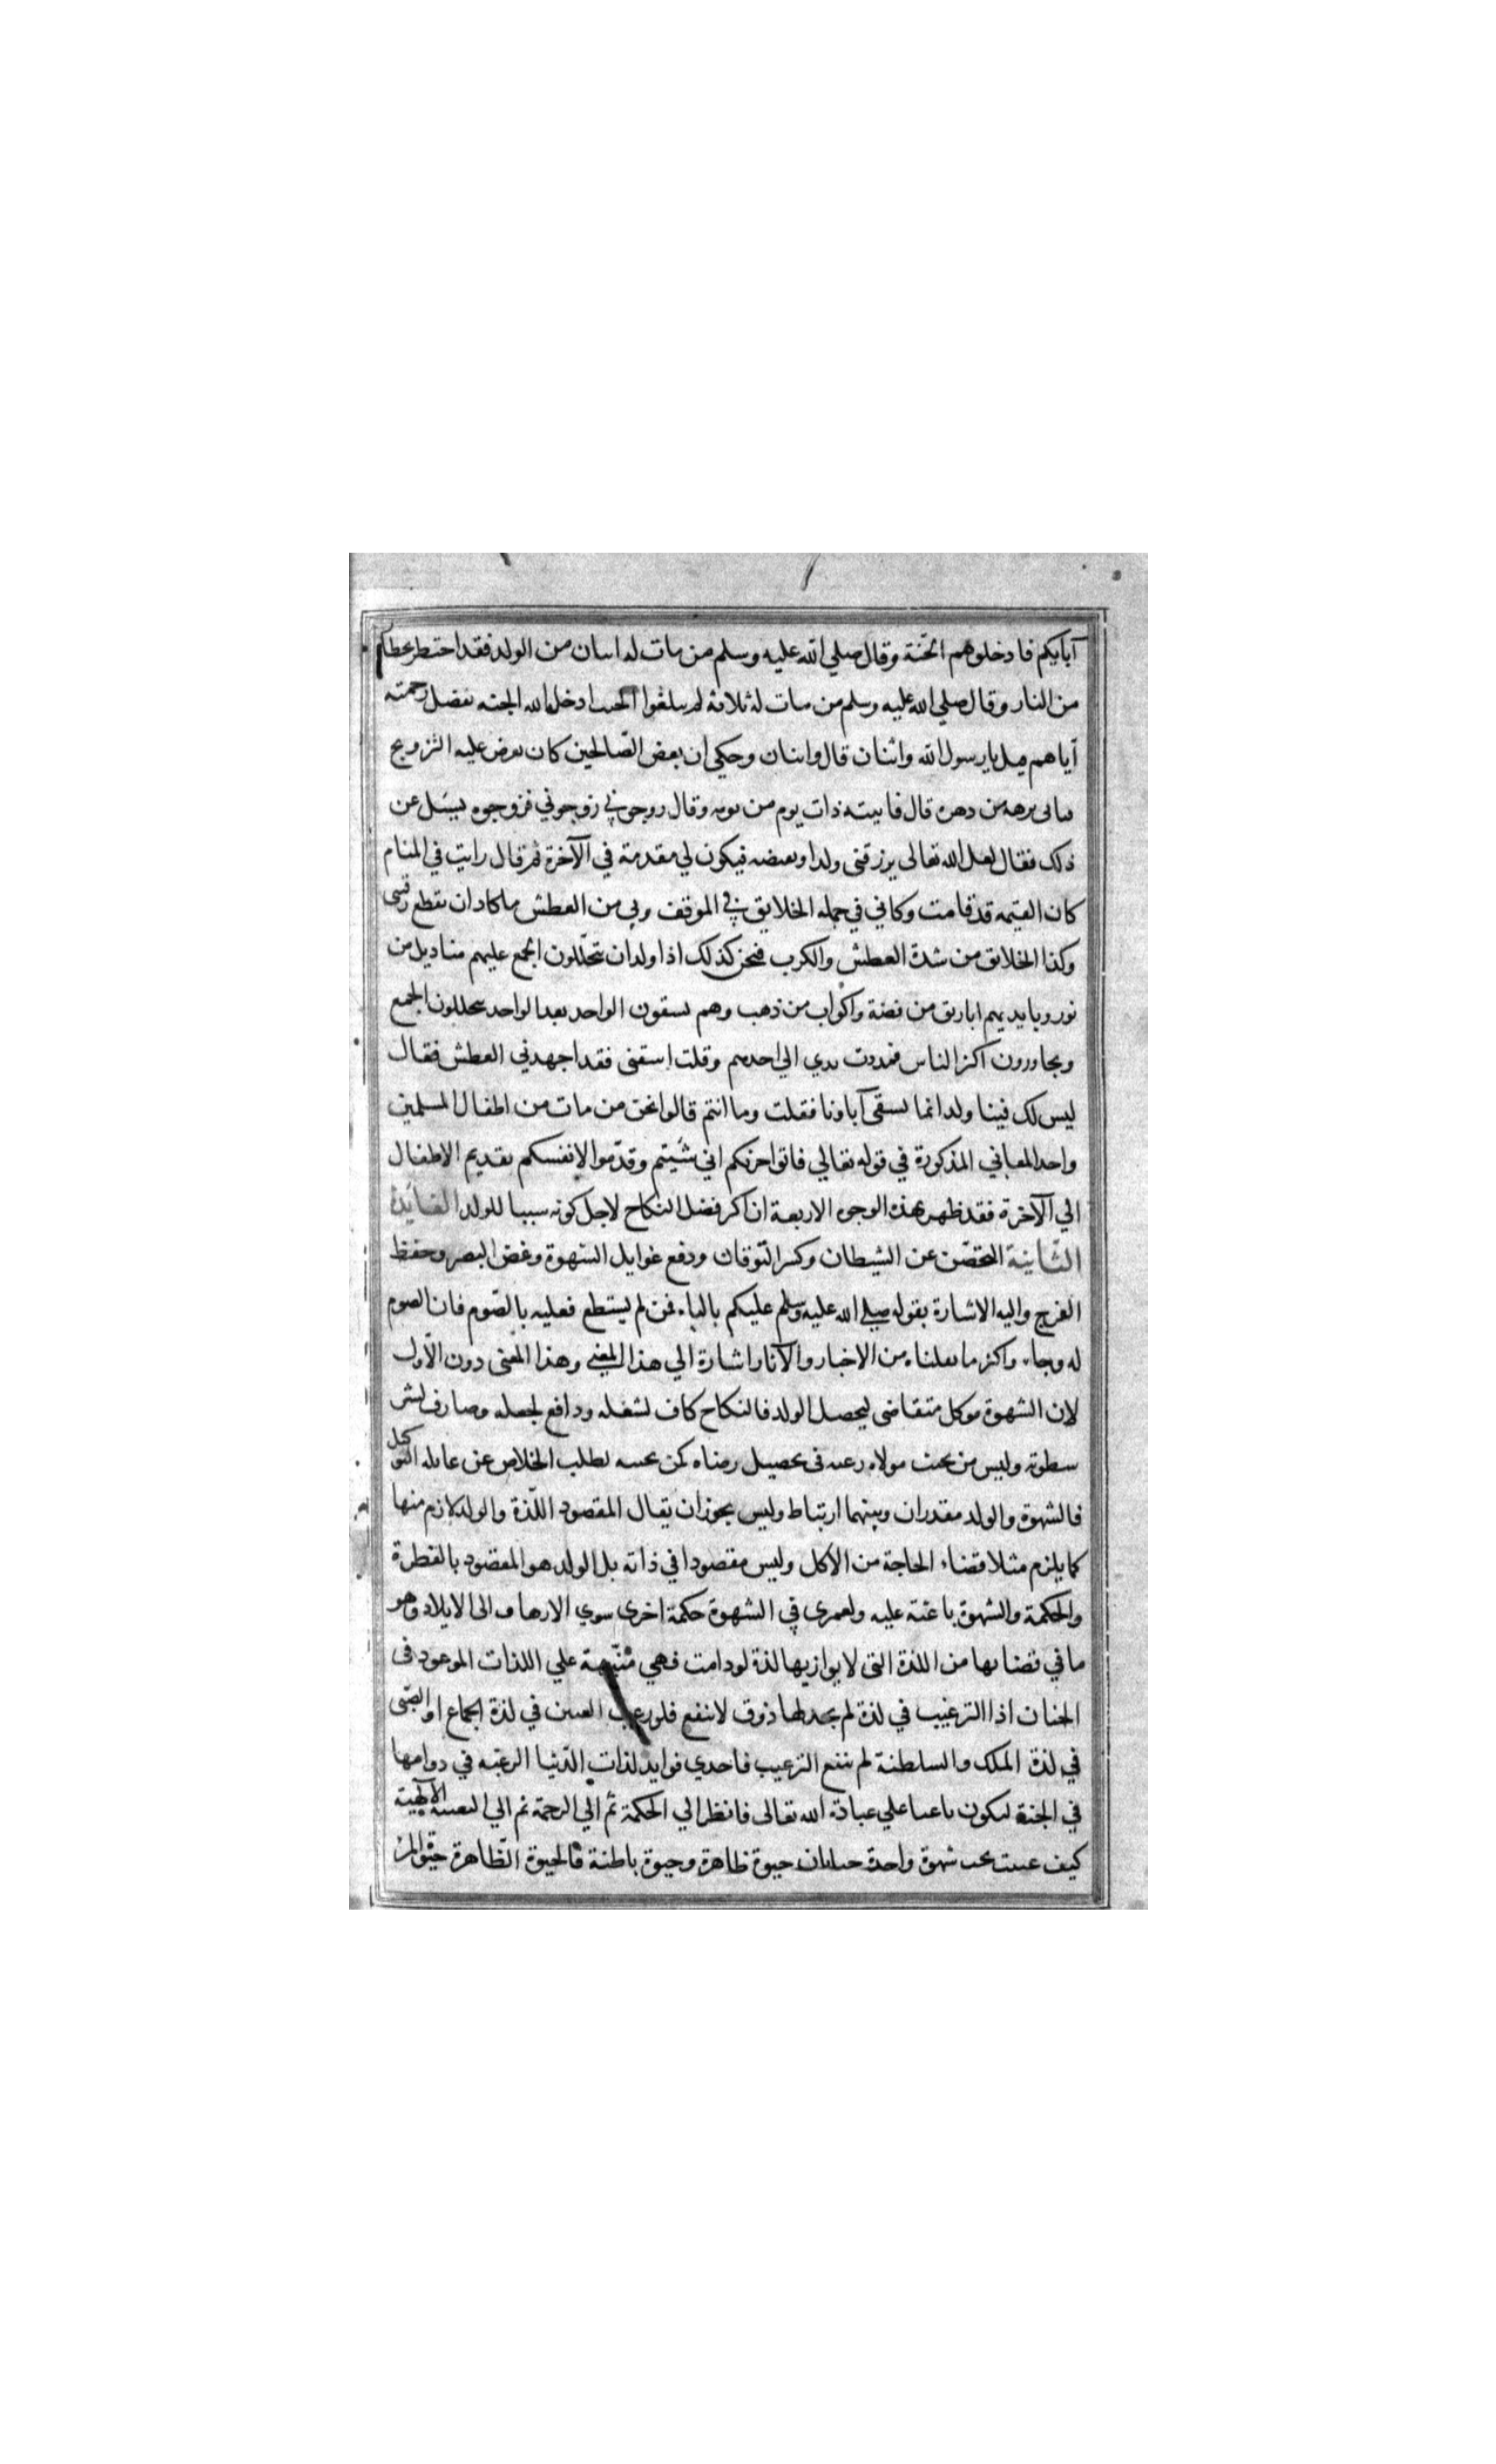 آبايكم فادخلوهم الجنة وقال صلي الله عليه وسلم من مات له اسان من الولد فقد احتظر بحظار
من النار وقال صلي الله عليه وسلم من مات له ثلاثة لم يبلغوا الحنث ادخله الله الجنه بفضل رحمته
آياهم قيل يا رسول الله واثنان قال واثنان وحكي ان بعض الصّالحين كان يعرض عليه التزويج
فيابى برهه من دهره قال فانبته ذات يوم من نومه وقال زوجوني زوجوني فزوجوه فسئل عن
ذلك فقال لعل الله تعالى يرزقني ولدا ويقبضه فيكون لي مقدمة في الآخرة ثم قال رايت في المنام
كان القيمه قد قامت وكاني في جمله الخلايق في الموقف وبي من العطش ما كاد ان يقطع رقبتى
وكذا الخلايق من شدة العطش والكرب فنحن كذلك اذا ولدان يتخلّلون الجمع عليهم مناديل من
نور وبايديهم اباريق من فضة واكواب من ذهب وهم يسقون الواحد بعد الواحد يتخللون الجمع
ويجاوزون اكثر الناس فمددت يدي الي احدهم وقلت اسقنى فقد اجهدني العطش فقال
ليس لك فينا ولد انما نسقى آباونا فقلت وما انتم قالوا نحن من مات من اطفال المسلمين
واحد المعاني المذكورة في قوله تعالي فاتوا حرثكم اني شئتم وقدّموا لانفسكم تقديم الاطفال
الي الآخرة فقد ظهر بهذه الوجوه الاربعة ان اكثر فضل النكاح لاجل كونه سببا للولد الفايدة
الثّانية التحصّن عن الشيطان وكسر التوقان ودفع غوايل الشهوة وغض البصر وحفظ
الفرج واليه الاشارة بقوله صلي الله عليه وسلم عليكم بالباء فمن لم يستطع فعليه بالصّوم فان الصوم
له وجاء واكثر ما نقلناه من الاخبار والآثار اشارة الي هذا المعني وهذا المعنى دون الاّول
لان الشهوة موكل متقاضى لتحصيل الولد فالنكاح كاف لشغله ودافع لجعله وصارف لشر
سطوته وليس من يجيب مولاه رغبة فى تحصيل رضاه كمن يجيبه لطلب الخلاص عن غايله التوكل
فالشهوة والولد مقدران وبينهما ارتباط وليس يجوز ان يقال المقصود اللّذة والولد لازم منها
كما يلزم مثلا قضاء الحاجة من الاكل وليس مقصودا في ذاته بل الولد هو المقصود بالفطرة
والحكمة والشهوة باعثة عليه ولعمرى في الشهوة حكمة اخرى سوي الارهاق الى الايلاد وهو
ما في قضائها من اللذة التى لا يوازيها لذة لو دامت فهي منبّهة علي اللذات الموعود فى
الجنان اذا الترغيب في لذة لم يجد لها ذوق لا ينفع فلو رغب العنين في لذة الجماع او الصّبى
في لذة الملك والسلطنة لم ينفع الترغيب فاحدي فوايد لذات الدّنيا الرغبه في دوامها
في الجنة ليكون باعثا علي عبادة الله تعالى فانظر الي الحكمة ثم الي الرحمة ثم الي التعبيه الآلهية
كيف عبيت تحت شهوة واحدة حياتان حيوة ظاهرة وحيوة باطنة فالحيوة الظّاهرة حيوة المرء